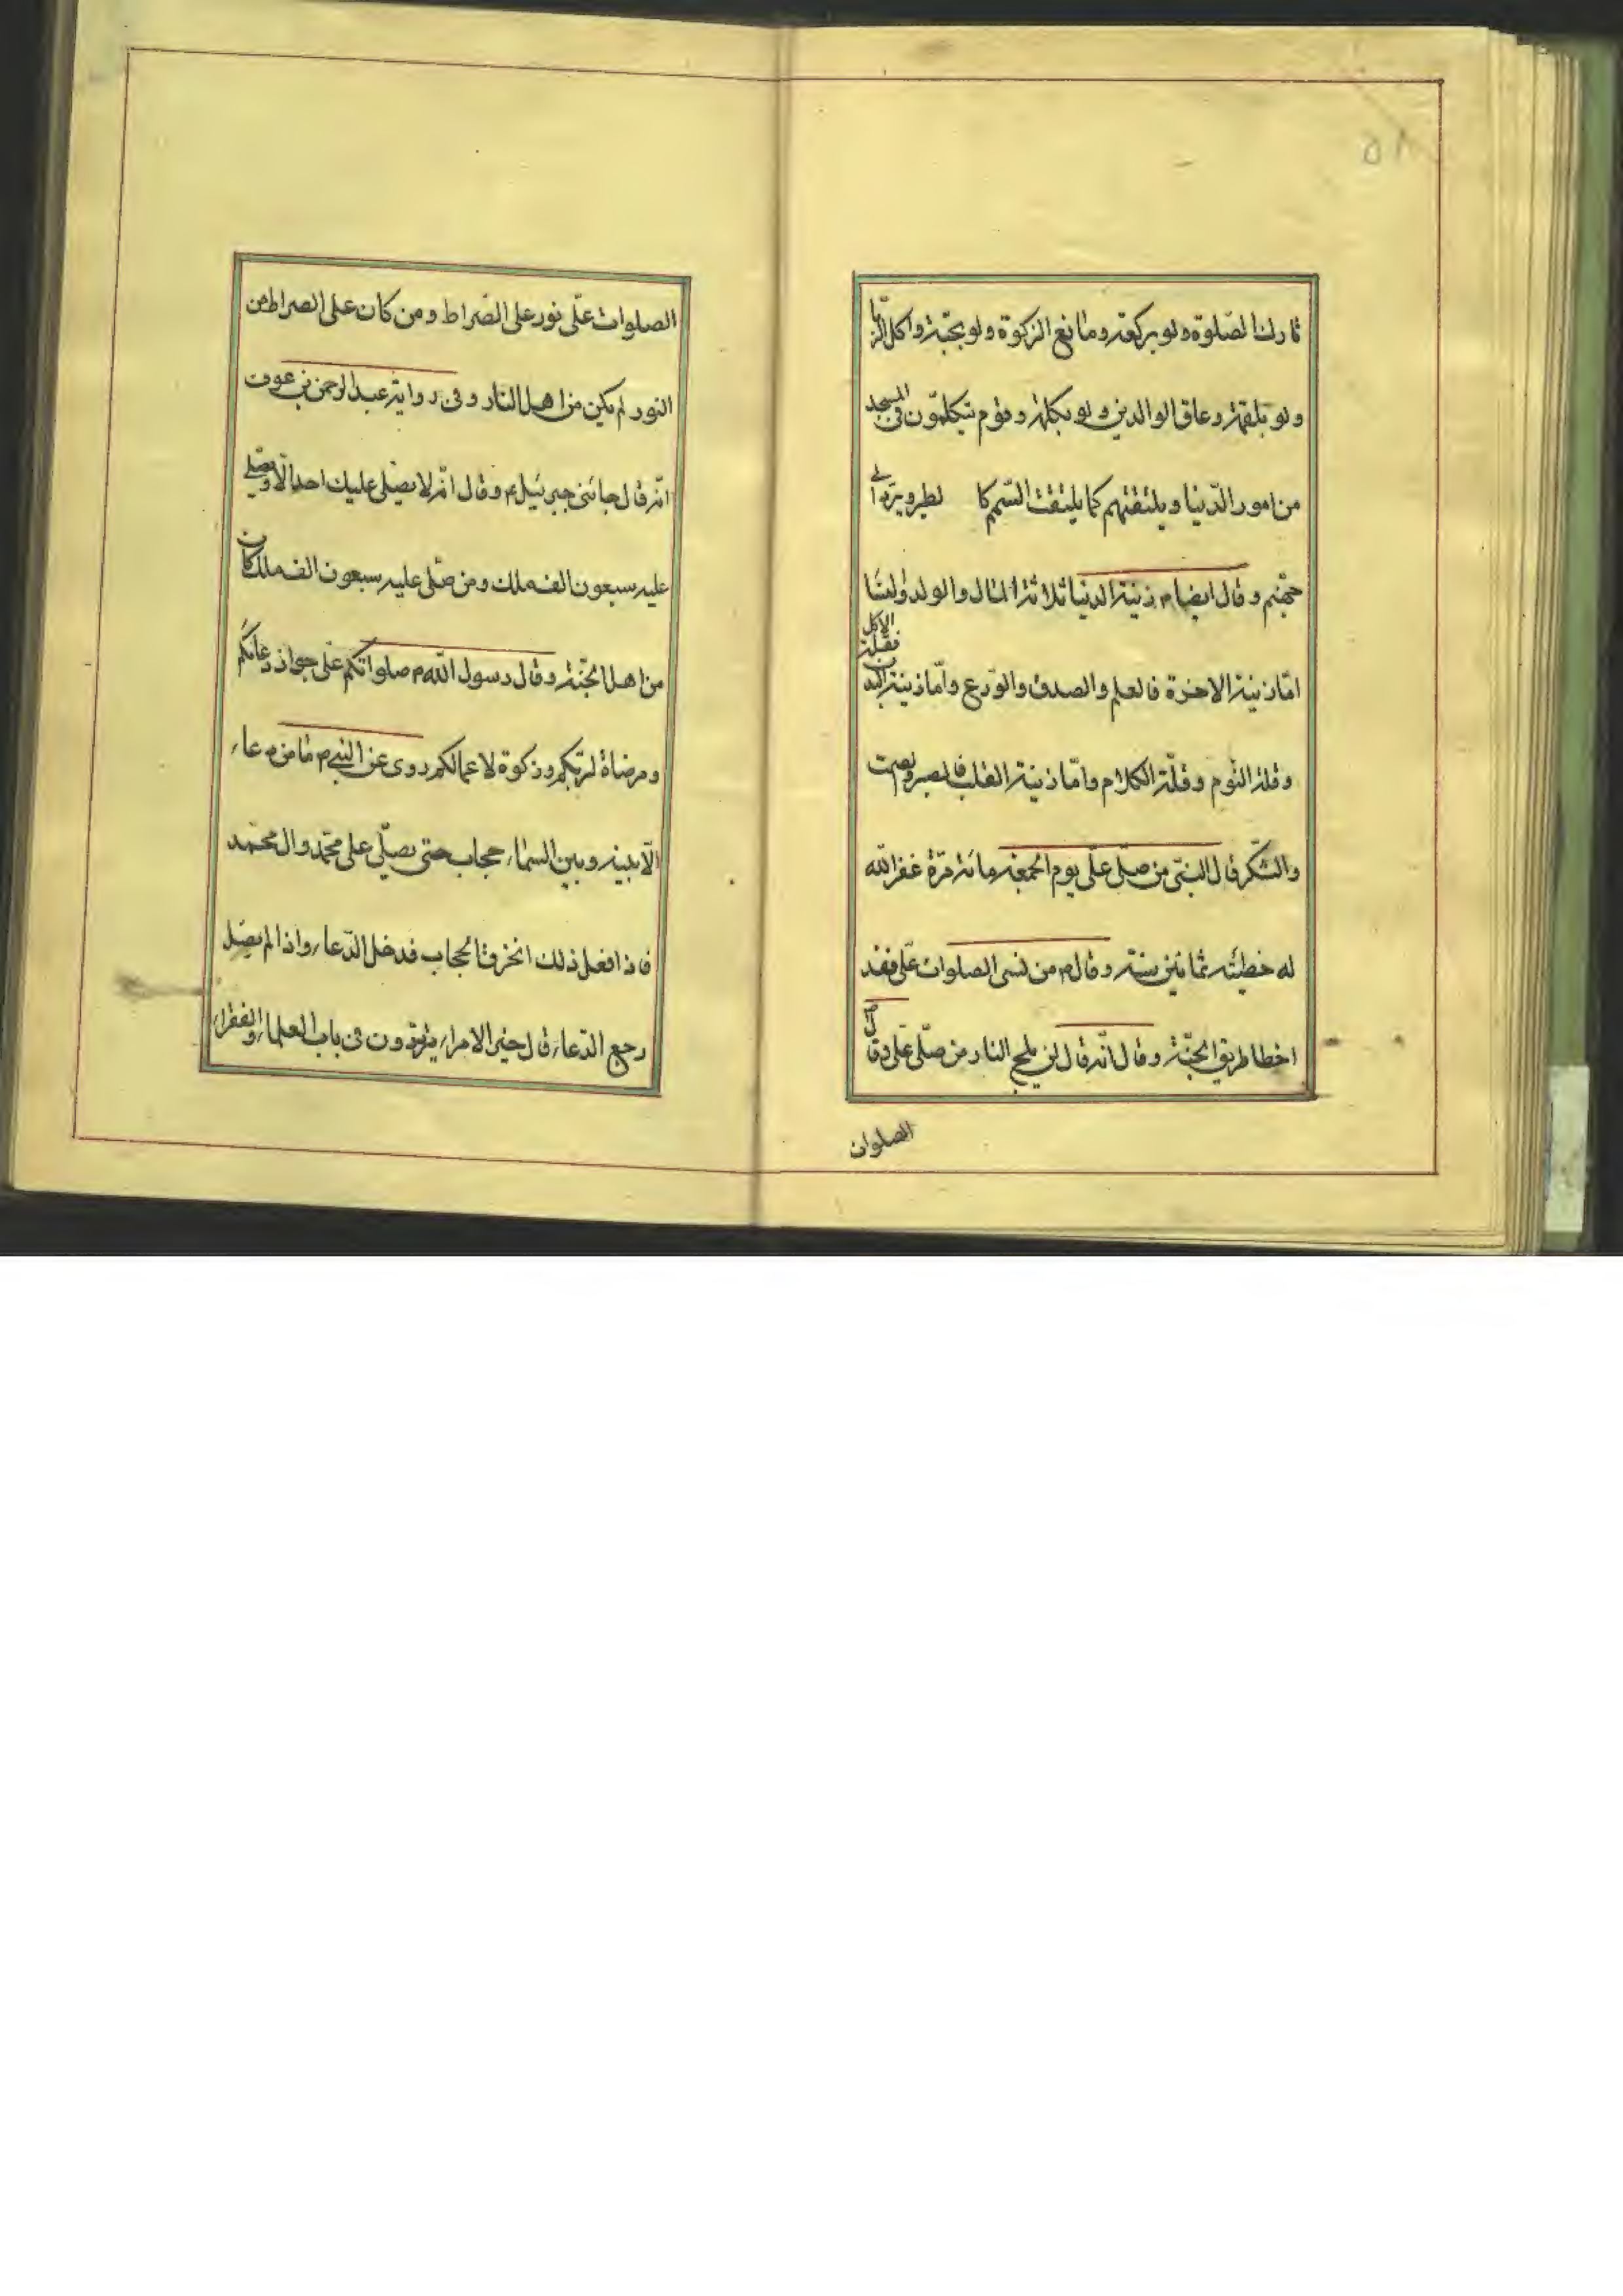 تارك الصّلوة ولو بركعة ومانع الزكوة ولو بحبّة واكل الرّبا
ولو بلقمة وعاق الوالدين ولو بكلمة وقوم يتكلمّون فى المسجد
من امور الدّنيا ويلتقتهم كما يلتقت السّمكا لطير ويرّد الى
جهنّم وقال ايضا م زينة الدنيا ثلاثة المال والولد والنسا
امّا زينة الاخرة فالعلم والصدق والورع وامّا زينة البدن فقلة الاكل
وقلة النّوم وقلّة الكلام وامّا زينة القلب فالصبر وصمت
والشّكر قال النبّى من صلّى علّى يوم الجمعة مائة مرّة غفر الله
له خطيئة ثمانين سنة وقال م من نسى الصلوات علّى فقد
اخطا طريق الجنّة وقال انّه قال لن يلج النار من صلّى علّى وقال ص
الصلوات
الصلوات علّى نور على الصّراط ومن كان على الصراط من
النور لم يكن من اهل النار وفى رواية عبد الرحمن بن عوف
انّه قال جائنى جبرئيل ع وقال انّه لا يصلّى عليك احد الّا ويصلّى
عليه سبعون الف ملك ومن صلّى عليه سبعون الف ملك كان
من اهل الجنّة وقال رسول الله م صلواتكم علّى جواز دعائكم
ومرضاة لربّكم وزكوة لاعمالكم روى عن النبى م ما من دعاء
الّا بينه وبين السماء حجاب حتى يصلّى على محمّد وال محمّد
فاذا فعل ذلك انخرق الحجاب فدخل الدّعاء واذا لم يصّل
رجع الدّعاء قال خير الامراء يترددون فى باب العلماء والفقراء